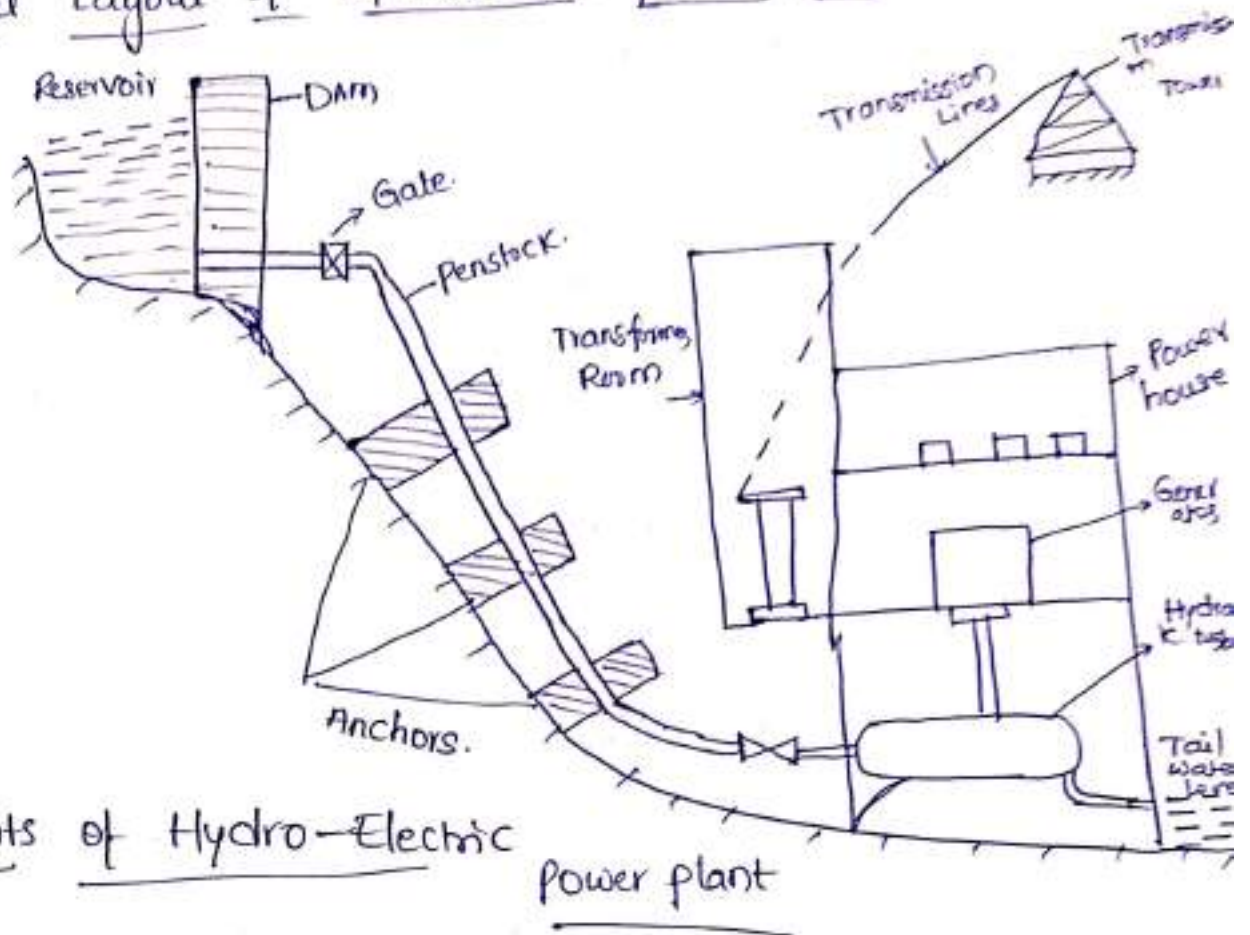 Layout of
Reservoir
DAM
Gate.
Penstock.
Transmission
Lines
Transmissi
n
Towers
Transformer
Room
Power
house
Gener
ators
Hydra
Tail
water
level
Anchors.
ts of Hydro-Electric
power plant